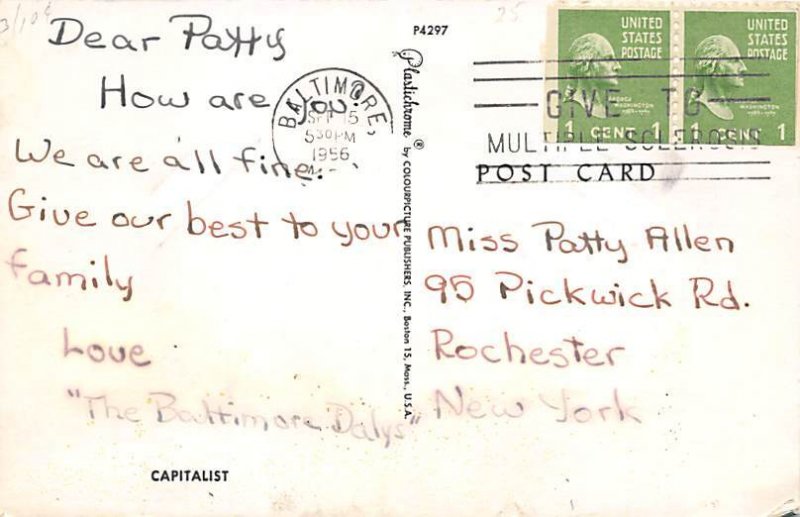 3/10¢
25
P4297
Dear Patty
How are you.
We are all fine.
Give our best to your
family
Love
"The Baltimore Dalys"
CAPITALIST
BALTIMORE,
SEP 15
530PM
1956
Plastichrome ® by COLOURPICTURE PUBLISHERS, INC., Boston 15, Mass., U.S.A.
UNITED STATES POSTAGE
GEORGE WASHINGTON
1 CENT 1
UNITED STATES POSTAGE
WASHINGTON
1 CENT 1
GIVE TO
MULTIPLE SCLEROSIS
POST CARD
Miss Patty Allen
95 Pickwick Rd.
Rochester
New York